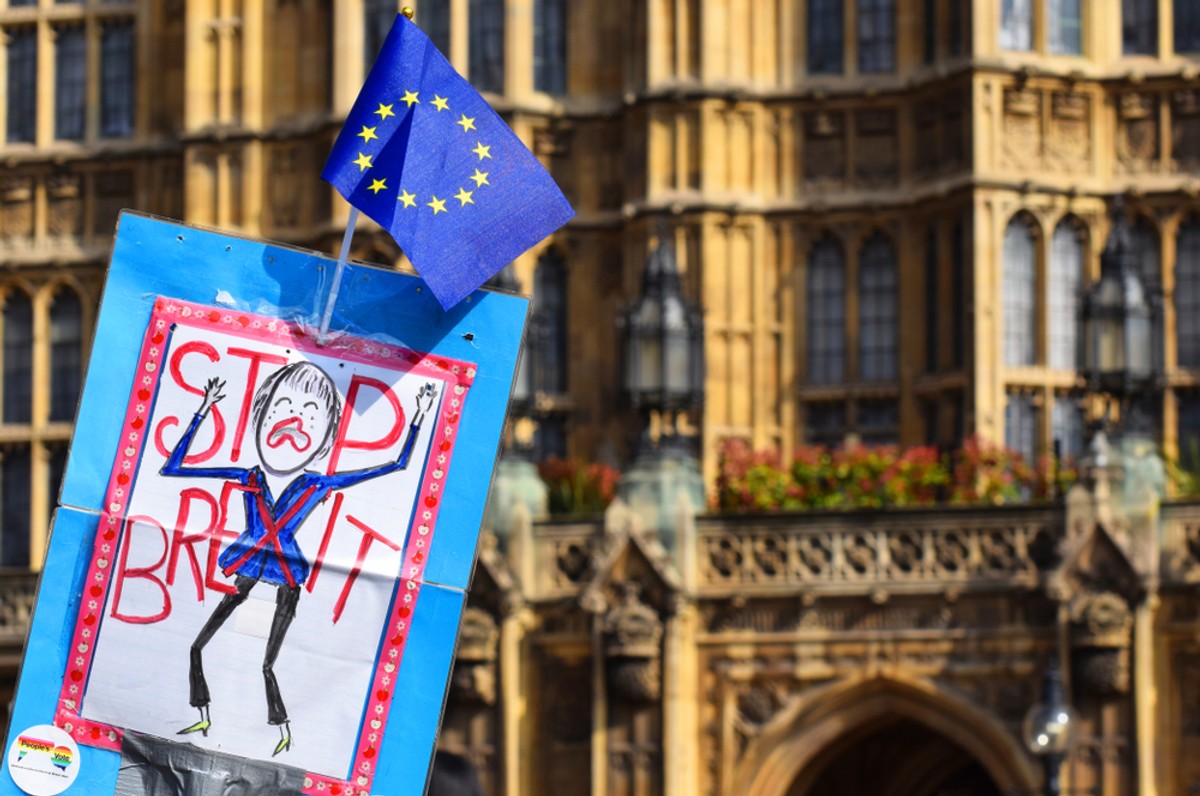 STOP
BREXIT
People's
Vote